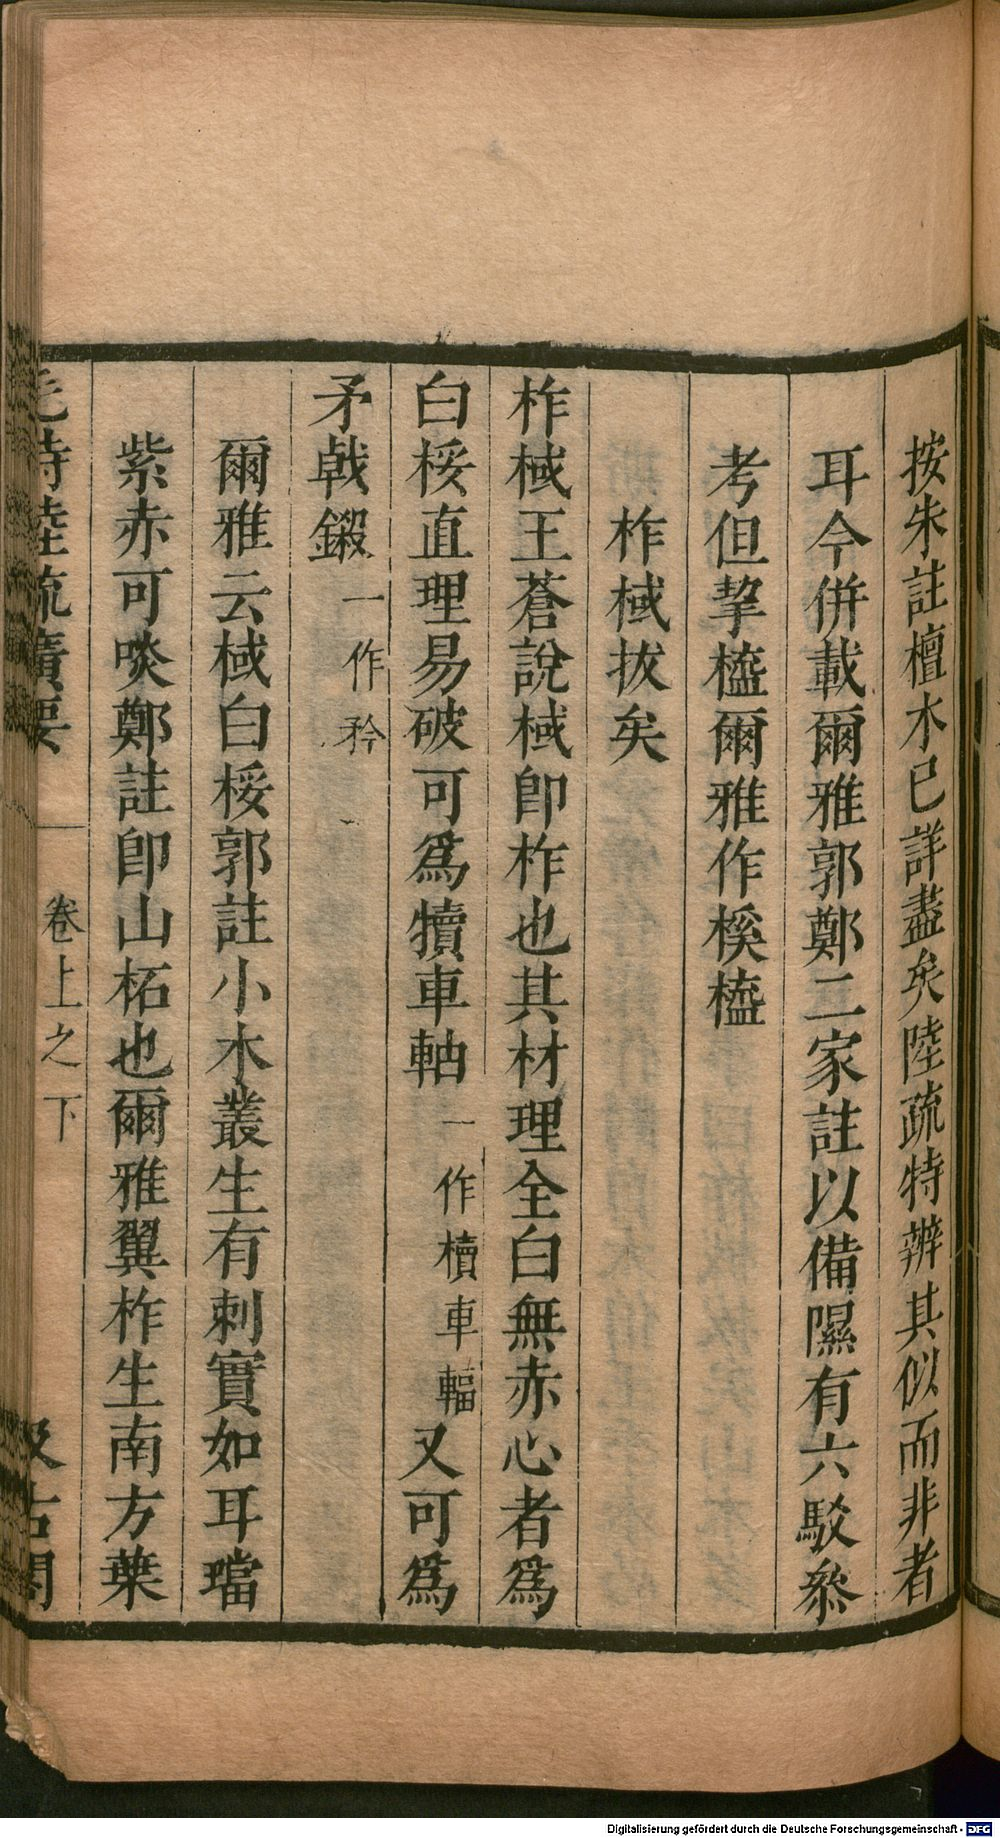 按朱註檀木已詳盡矣陸疏特辨其似而非者
耳今併載爾雅郭鄭二家註以備隰有六駁叅
考但挈橀爾雅作榽橀
柞棫拔矣
柞棫王蒼說棫卽柞也其材理全白無赤心者爲
白桵直理易破可爲犢車軸一作櫝車輻又可爲
矛戟鎩一作矜
爾雅云棫白桵郭註小木叢生有刺實如耳璫
紫赤可啖鄭註卽山柘也爾雅翼柞生南方葉
毛詩陸疏廣要 卷上之下 汲古閣
Digitalisierung gefördert durch die Deutsche Forschungsgemeinschaft - DFG